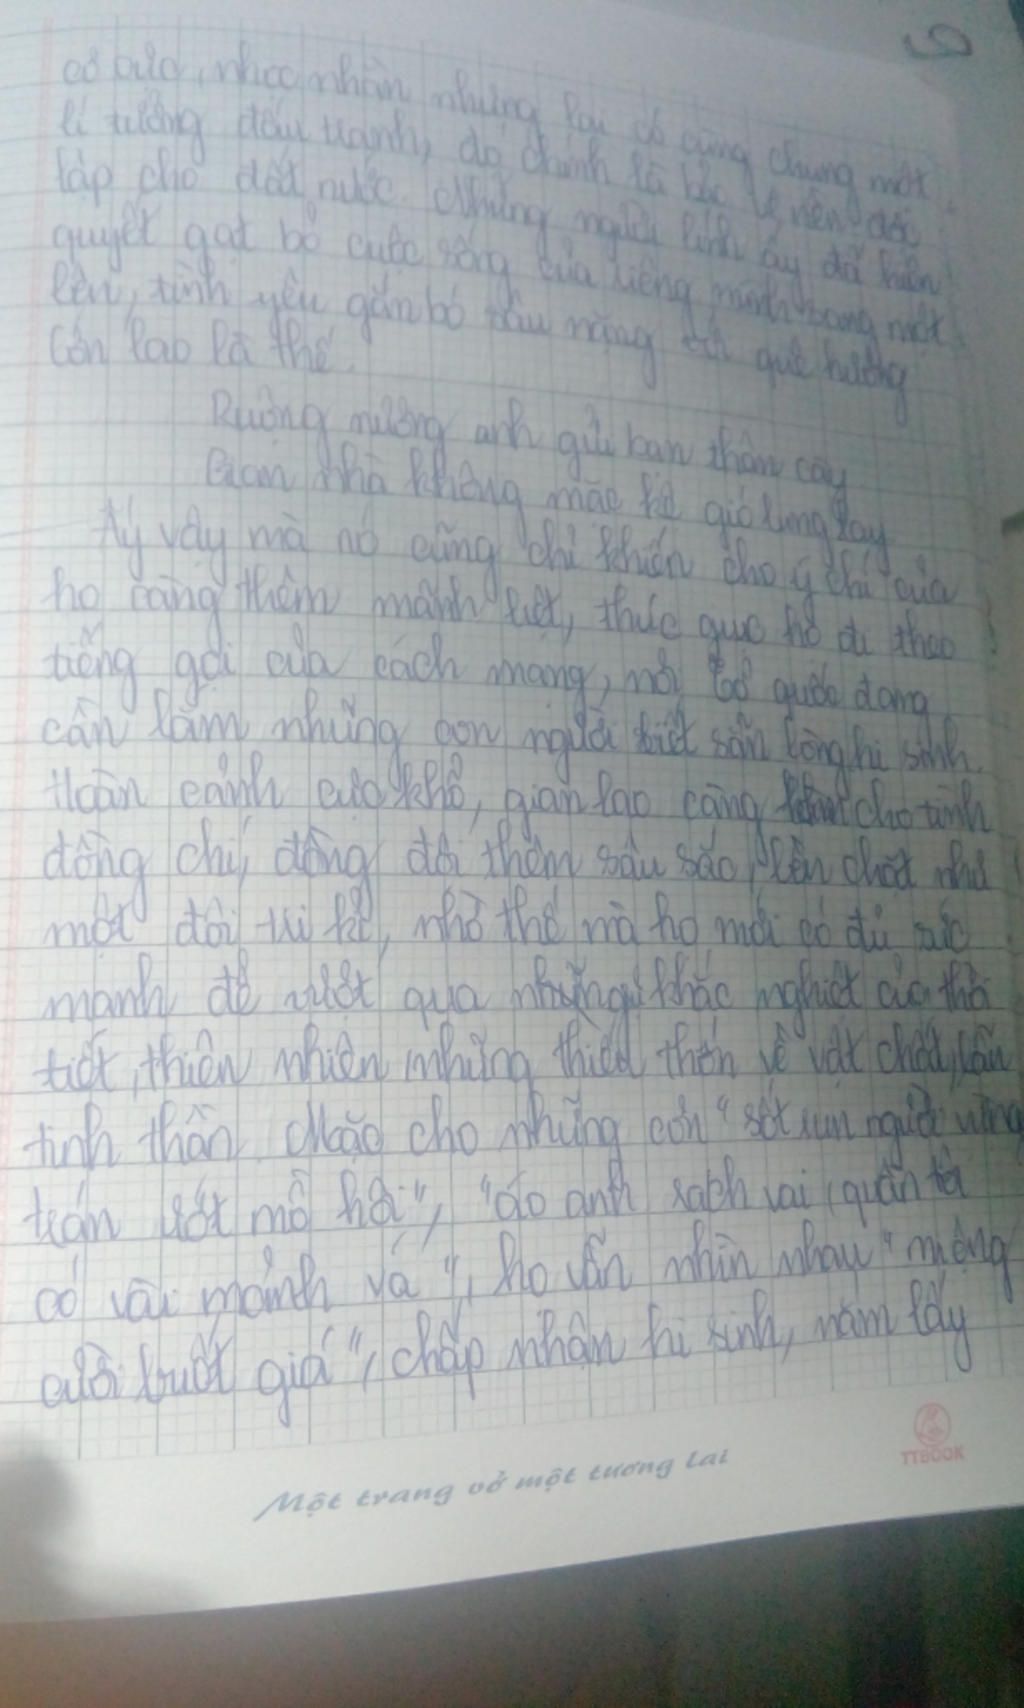 cơ cực, nhọc nhằn nhưng lại có cùng chung một
lí tưởng đấu tranh, đó chính là bảo vệ nền độc
lập cho đất nước. Những người lính ấy đã kiên
quyết gạt bỏ cuộc sống của riêng mình song một
lên, tình yêu gắn bó sâu nặng với quê hương
còn lao là thế.
Ruộng nương anh gửi bạn thân cày
Gian nhà không mặc kệ gió lung lay
Ấy vậy mà nó cũng chỉ khiến cho ý chí của
họ càng thêm mãnh liệt, thúc giục họ đi theo
tiếng gọi của cách mạng, nơi tổ quốc đang
cần lắm những con người biết sẵn lòng hi sinh.
Hoàn cảnh cực khổ, gian lao càng cho tình
đồng chí, đồng đội thêm sâu sắc, bền chặt như
một đôi tri kỉ, nhờ thế mà họ mới có đủ sức
mạnh để vượt qua những khắc nghiệt của thời
tiết, thiên nhiên, những thiếu thốn về vật chất, lẫn
tinh thần. Mặc cho những cơn "sốt run người vừng
trán ướt mồ hôi", "áo anh rách vai, quần tôi
có vài mảnh vá", họ vẫn nhìn nhau "miệng
cười buốt giá", chấp nhận hi sinh, nắm lấy
Một trang vở một tương lai
TTBOOK